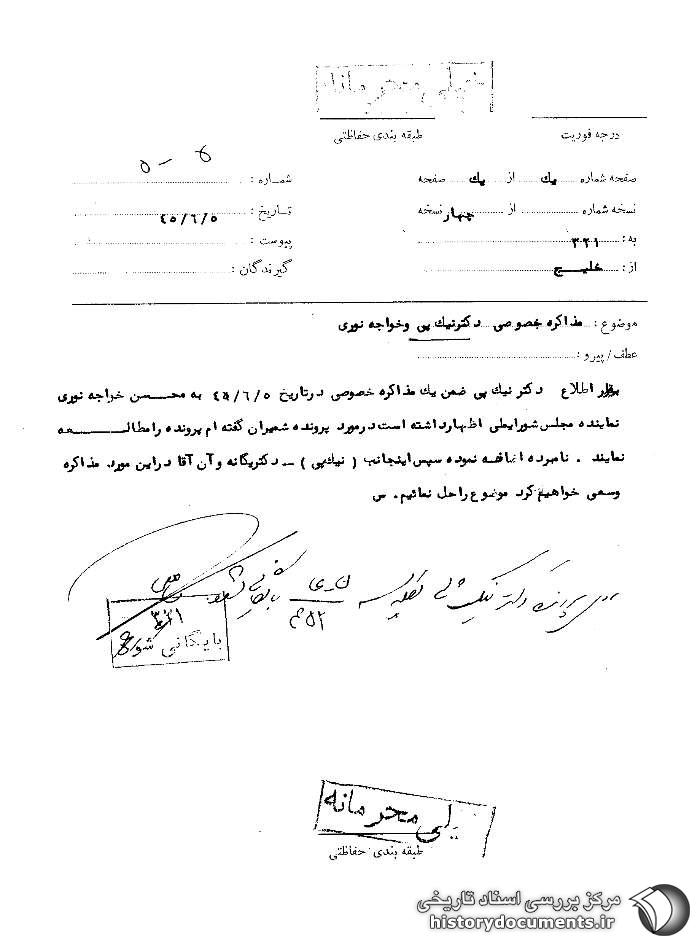 خیلی محرمانه
درجه فوریت
طبقه بندی حفاظتی
صفحه شماره یک از یک صفحه
شماره :
نسخه شماره از چهار نسخه
تاریخ : ۴۵/۶/۵
به : ۳۲۱
پیوست :
از : خلیج
گیرندگان :
موضوع : مذاکره خصوصی دکتر نیک پی و خواجه نوری
عطف/ پیرو :
برابر اطلاع دکتر نیک پی ضمن یک مذاکره خصوصی در تاریخ ۴۵/۶/۵ به محسن خواجه نوری
نماینده مجلس شورایملی اظهار داشته است در مورد پرونده شمیران گفته ام پرونده را مطالعه
نمایند . نامبرده اضافه نموده سپس اینجانب ( نیک پی ) - دکتر یگانه و آن آقا در این مورد مذاکره
وسعی خواهیم کرد موضوع را حل نمائیم . س
۳۲۱
بایگانی شود
خیلی محرمانه
طبقه بندی حفاظتی
مرکز بررسی اسناد تاریخی
historydocuments.ir